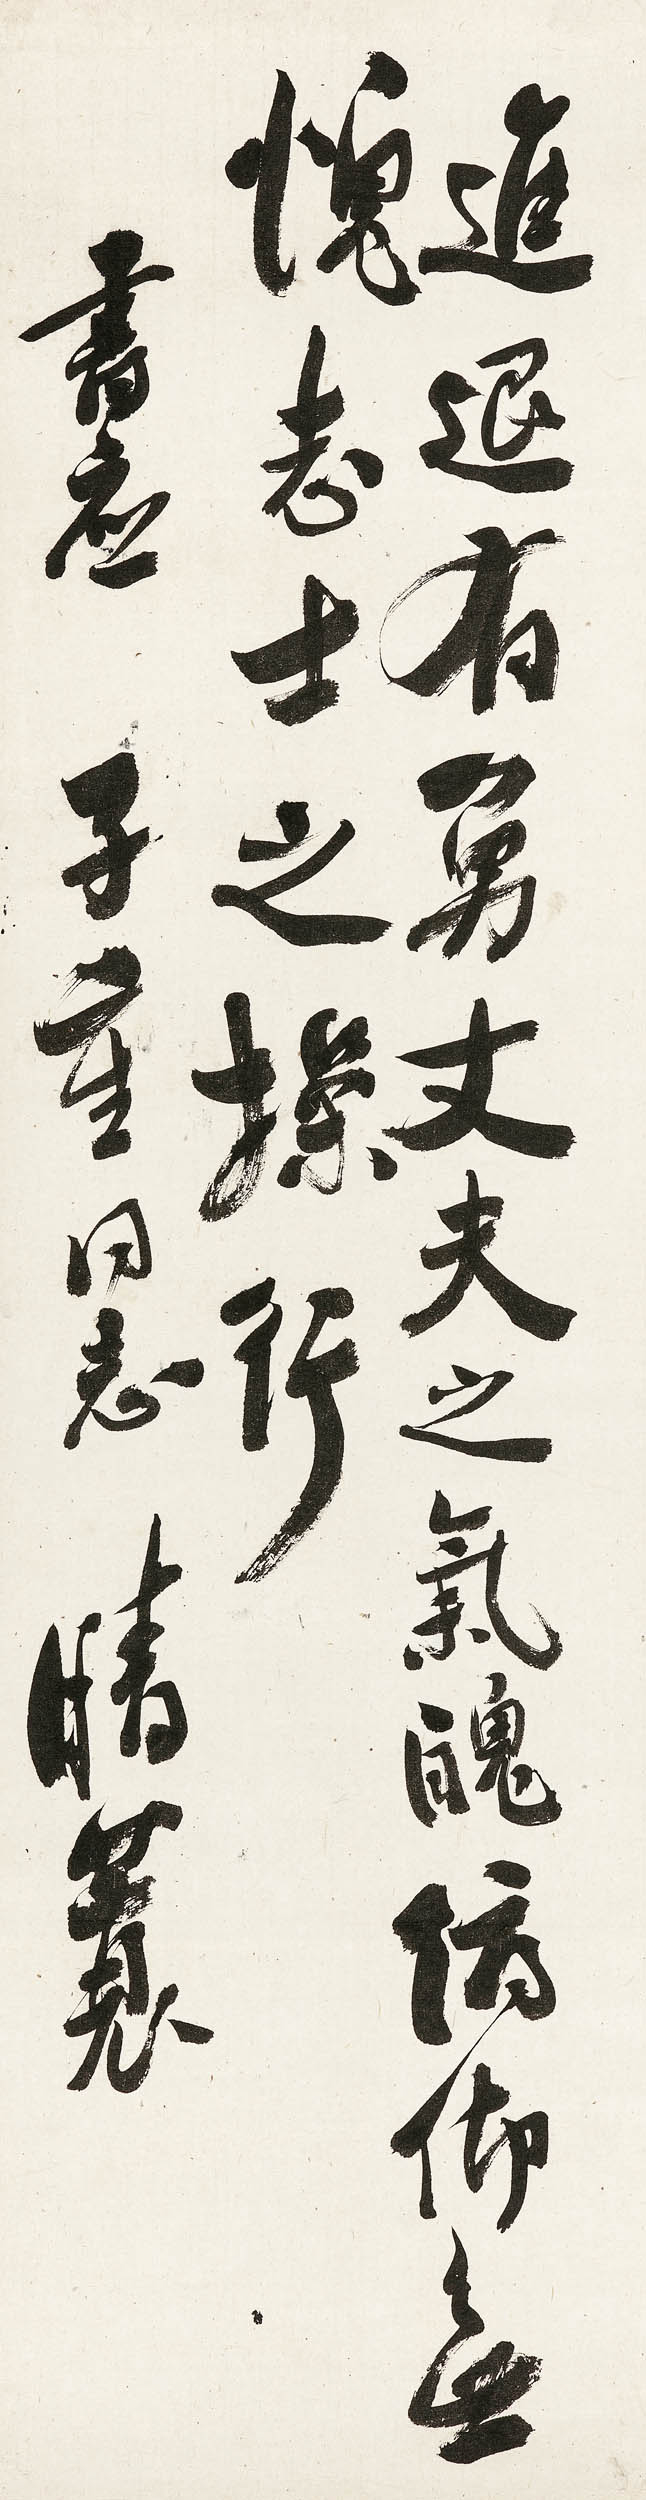 進退有勇丈夫之氣魄俯仰無
愧志士之操行
書應 子產同志 晴蓑